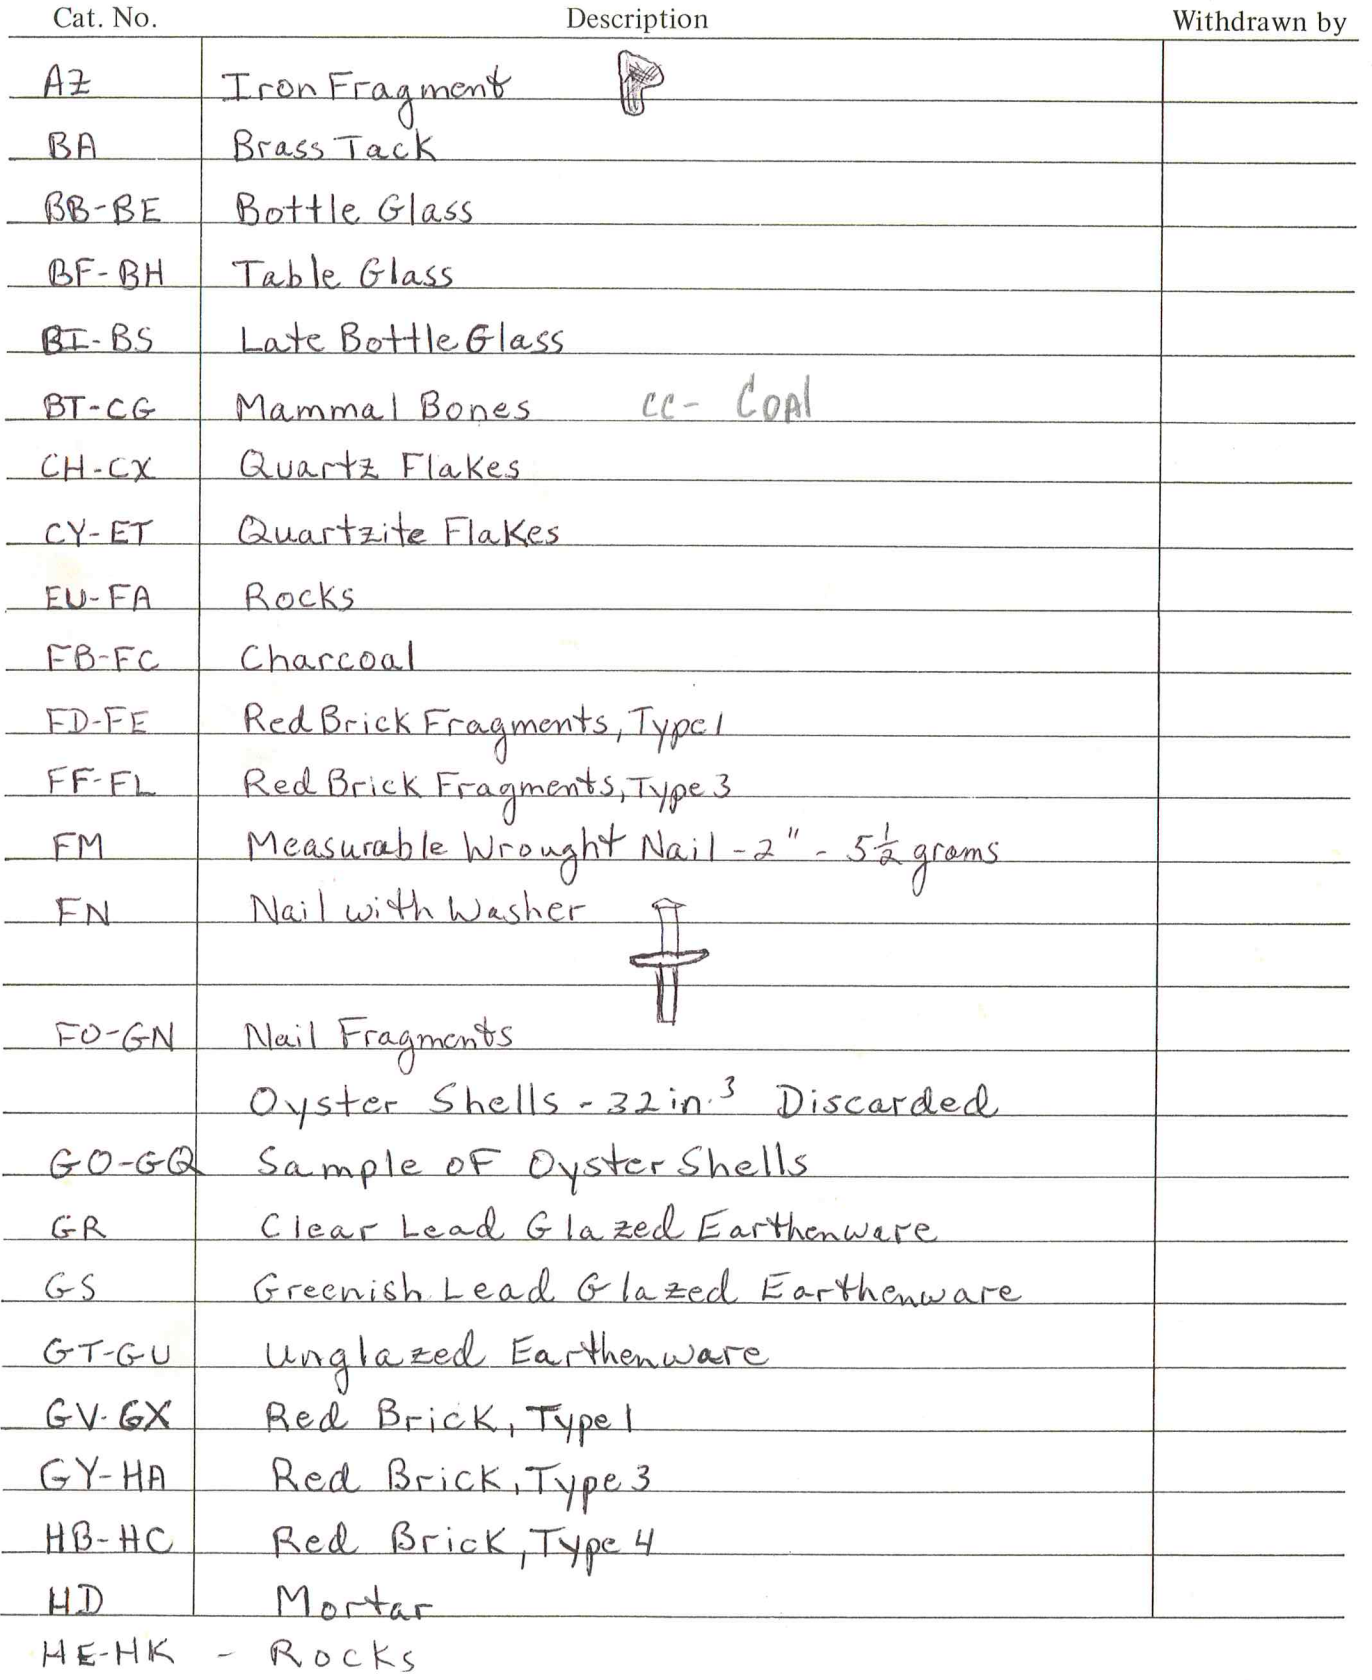 Cat. No. Description Withdrawn by
AZ Iron Fragment
BA Brass Tack
BB-BE Bottle Glass
BF-BH Table Glass
BI-BS Late Bottle Glass
BT-CG Mammal Bones CC- Coal
CH-CX Quartz Flakes
CY-ET Quartzite Flakes
EU-FA Rocks
FB-FC Charcoal
FD-FE Red Brick Fragments, Type 1
FF-FL Red Brick Fragments, Type 3
FM Measurable Wrought Nail - 2" - 5½ grams
FN Nail with Washer
FO-GN Nail Fragments
Oyster Shells - 32 in.³ Discarded
GO-GQ Sample of Oyster Shells
GR Clear Lead Glazed Earthenware
GS Greenish Lead Glazed Earthenware
GT-GU Unglazed Earthenware
GV-GX Red Brick, Type 1
GY-HA Red Brick, Type 3
HB-HC Red Brick, Type 4
HD Mortar
HE-HK - Rocks